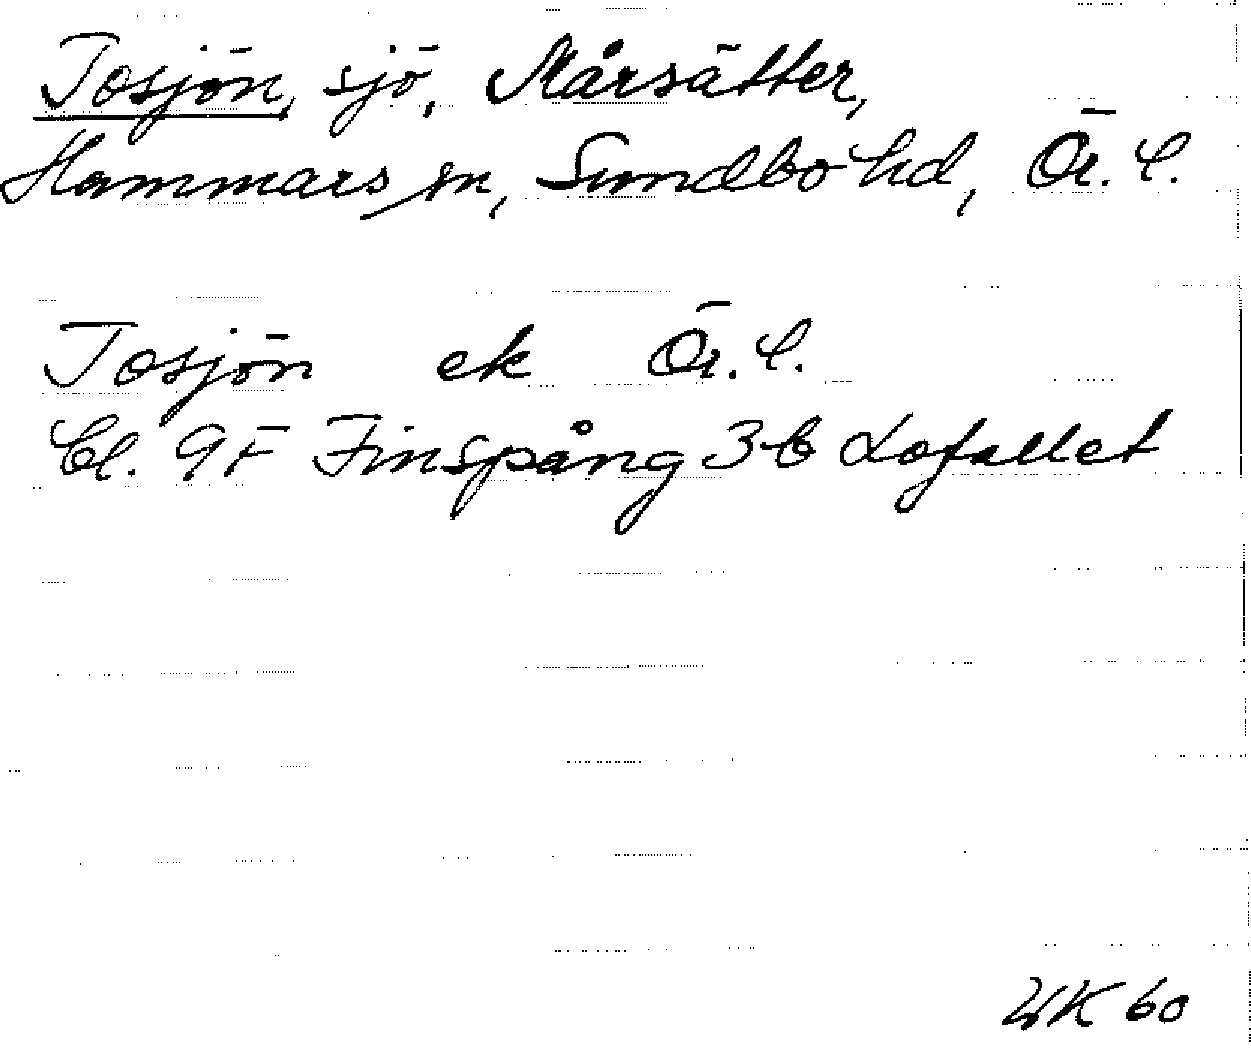 Tosjön, sjö, Mårsätter,
Hammars sn, Sundbo hd, Ör. l.
Tosjön ek Ör. l.
Bl. 9F Finspång 3b Lofallet
60